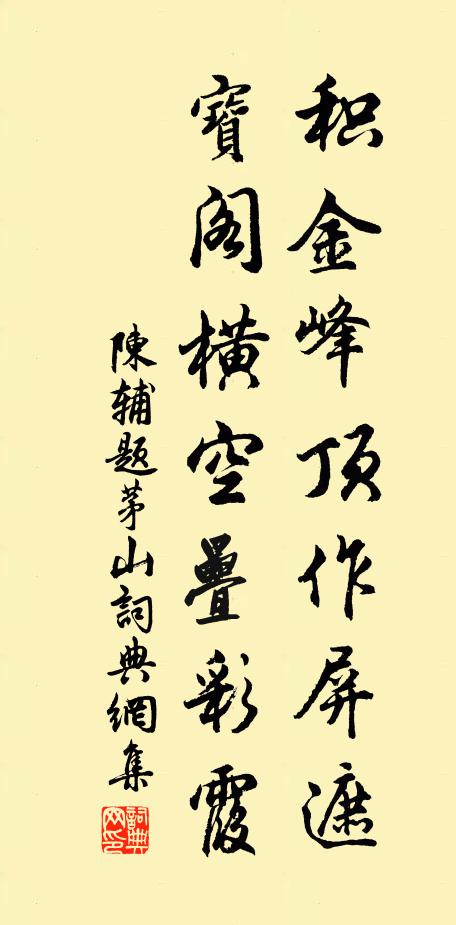 积金峰顶作屏遮
寶阁橫空疊彩霞
陳辅题茅山詞典網集
詞典网印